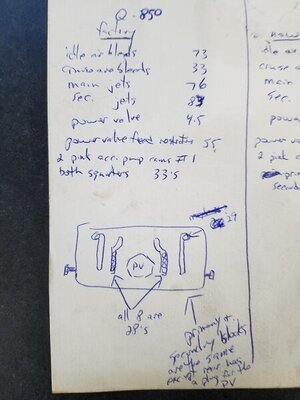 Q-850
factory
idle air bleeds 73
air bleeds 33
main jets 76
sec. jets 83
power valve 4.5
power valve feed restrictor 55
2 pink acc. pump cams #1
both squirters 33's
29
PV
all 8 are
28's
primary +
secondary blocks
are the same
except rear has
a plug for the
PV
now
idle a
cruise a
main
sec.
power
power va
2 pink
pri
second